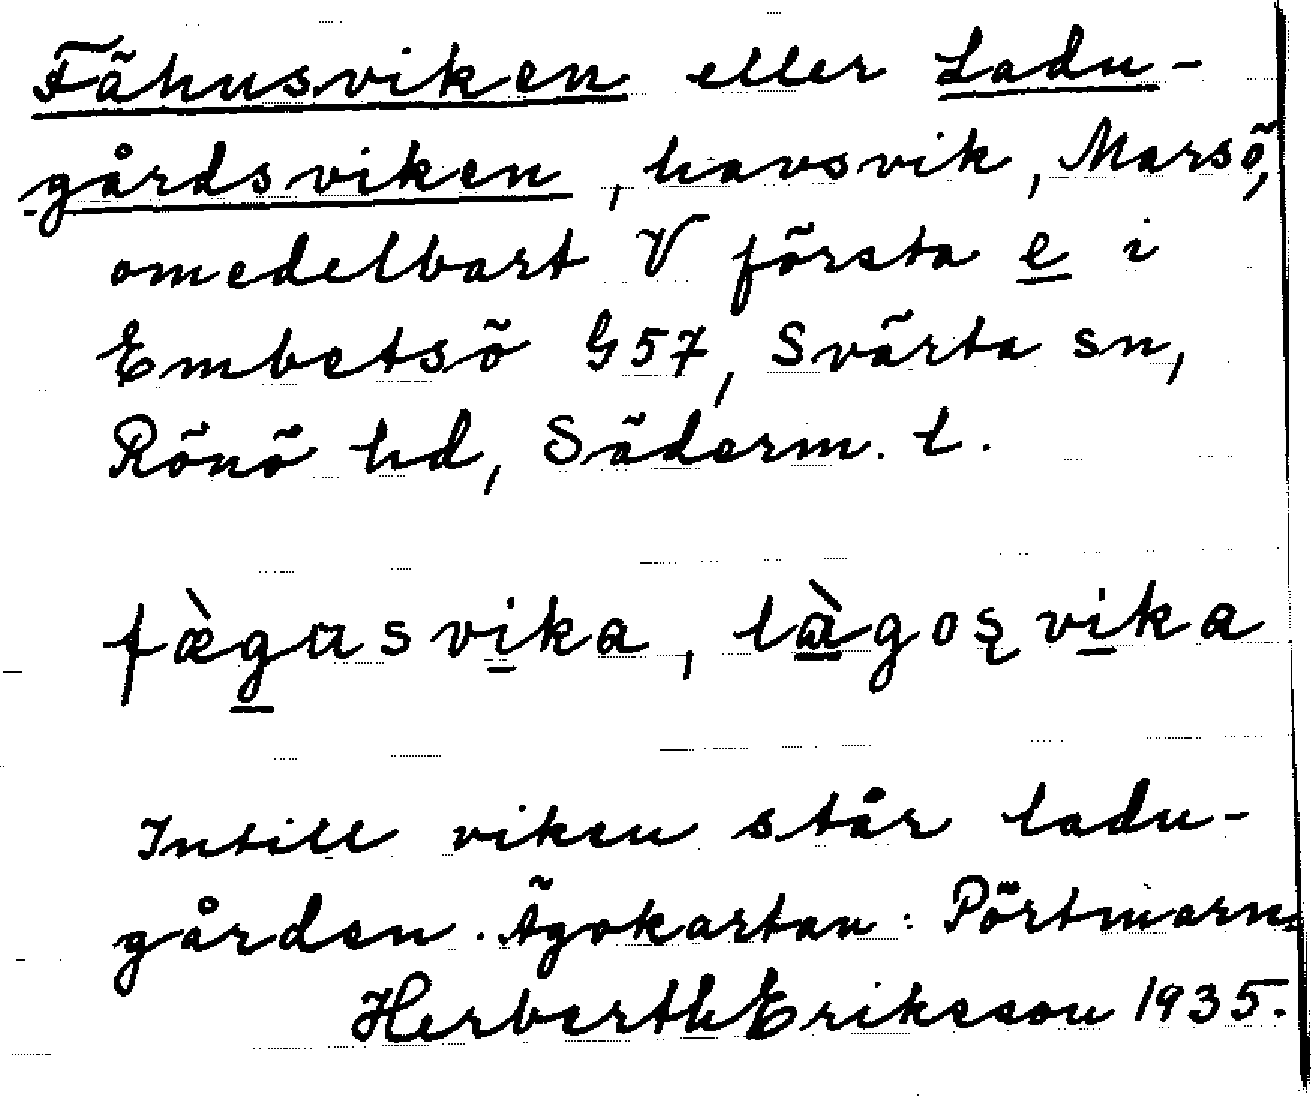 Fähusviken eller Ladu-
gårdsviken, havsvik, Marsö,
omedelbart V första e i
Embetsö G57, Svärta sn,
Rönö hd, Söderm. l.
fæ̀gasvika, làgosvika
Intill viken står ladu-
gården. Ägokartan: Pörtmarn=
Herberth Eriksson 1935.